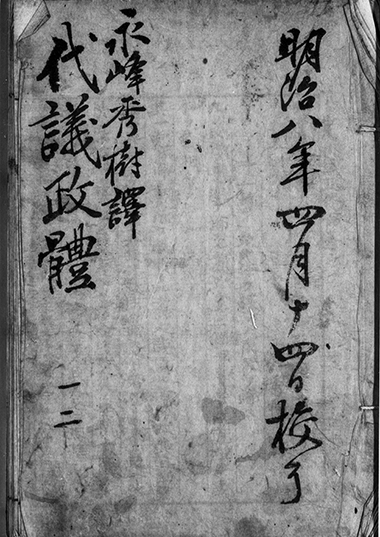 明治八年四月十四日校了
永峰秀樹譯
代議政體
一二